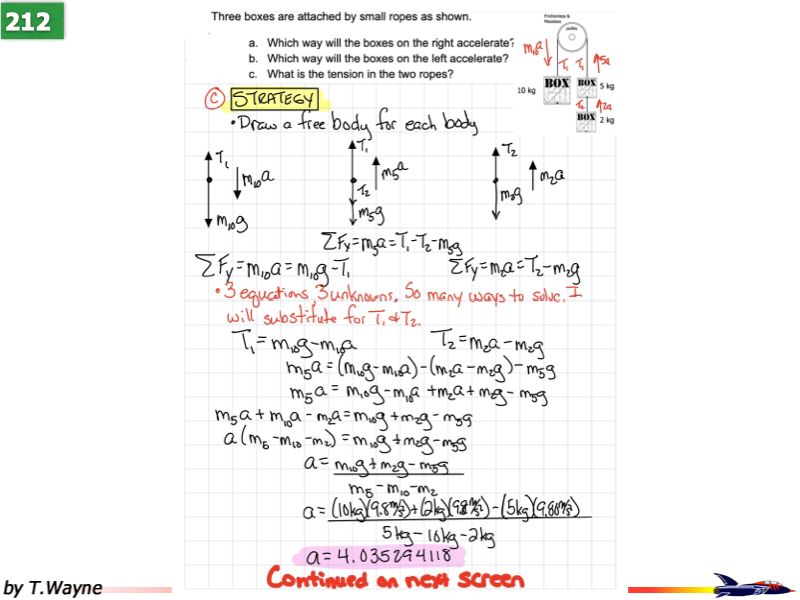 212
Three boxes are attached by small ropes as shown.
a. Which way will the boxes on the right accelerate?
b. Which way will the boxes on the left accelerate?
c. What is the tension in the two ropes?
Frictionless &
Massless
pulley
m₁₀a
T₁ T₁ 5a
10 kg BOX BOX 5 kg
T₂ 2a
BOX 2 kg
C STRATEGY
• Draw a free body for each body
T₁ m₁₀a m₁₀g
T₁ m₅a T₂ m₅g
T₂ m₂a m₂g
ΣFy=m₅a=T₁-T₂-m₅g
ΣFy=m₁₀a=m₁₀g-T₁ ΣFy=m₂a=T₂-m₂g
• 3 equations, 3 unknowns. So many ways to solve. I
will substitute for T₁ & T₂.
T₁=m₁₀g-m₁₀a T₂=m₂a-m₂g
m₅a=(m₁₀g-m₁₀a)-(m₂a-m₂g)-m₅g
m₅a= m₁₀g-m₁₀a +m₂a+m₂g-m₅g
m₅a+m₁₀a-m₂a=m₁₀g+m₂g-m₅g
a(m₅-m₁₀-m₂)=m₁₀g+m₂g-m₅g
a= m₁₀g+m₂g-m₅g
m₅-m₁₀-m₂
a=(10kg)(9.8m/s²)+(2kg)(9.8m/s²)-(5kg)(9.80m/s²)
5kg-10kg-2kg
a=4.035294118
Continued on next screen
by T.Wayne